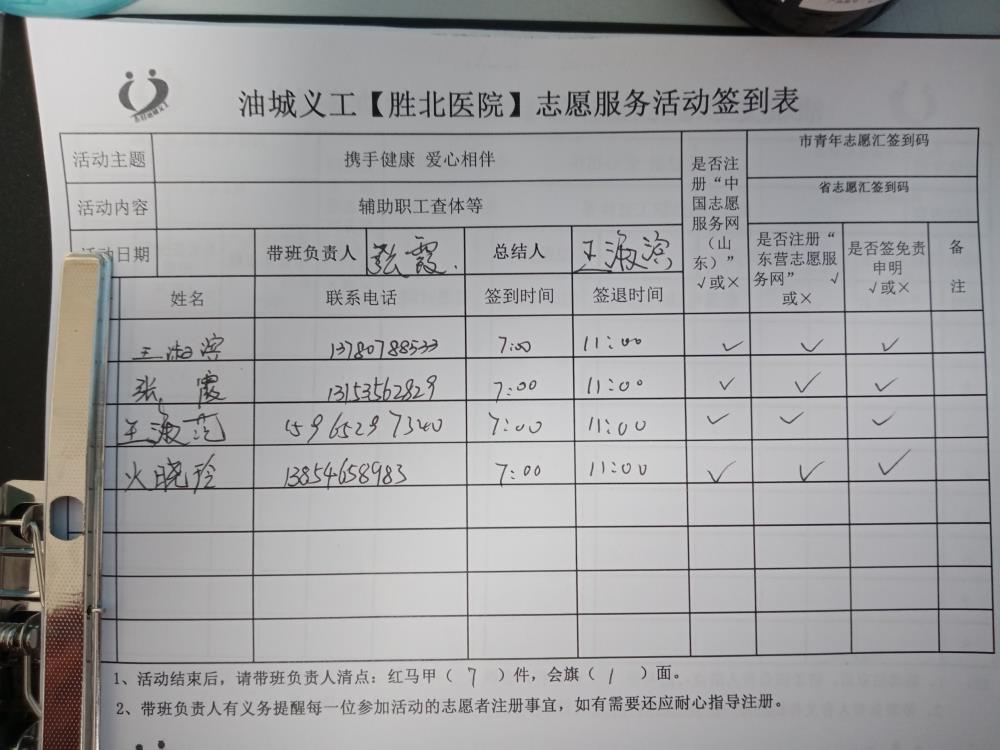 油城义工【胜北医院】志愿服务活动签到表
活动主题 携手健康 爱心相伴 是否注册“中国志愿服务网(山东)”√或× 市青年志愿汇签到码
活动内容 辅助职工查体等 省志愿汇签到码
动日期 带班负责人 张霞. 总结人 王淑滨 是否注册“东营志愿服务网” √或× 是否签免责申明√或× 备注
姓名 联系电话 签到时间 签退时间
王淑滨 13780788533 7:00 11:00 ✓ ✓ ✓
张霞 13153562829 7:00 11:00 ✓ ✓ ✓
王淑范 15965297340 7:00 11:00 ✓ ✓ ✓
火晓玲 13854658983 7:00 11:00 ✓ ✓ ✓
1、活动结束后,请带班负责人清点:红马甲( 7 )件,会旗( 1 )面。
2、带班负责人有义务提醒每一位参加活动的志愿者注册事宜,如有需要还应耐心指导注册。